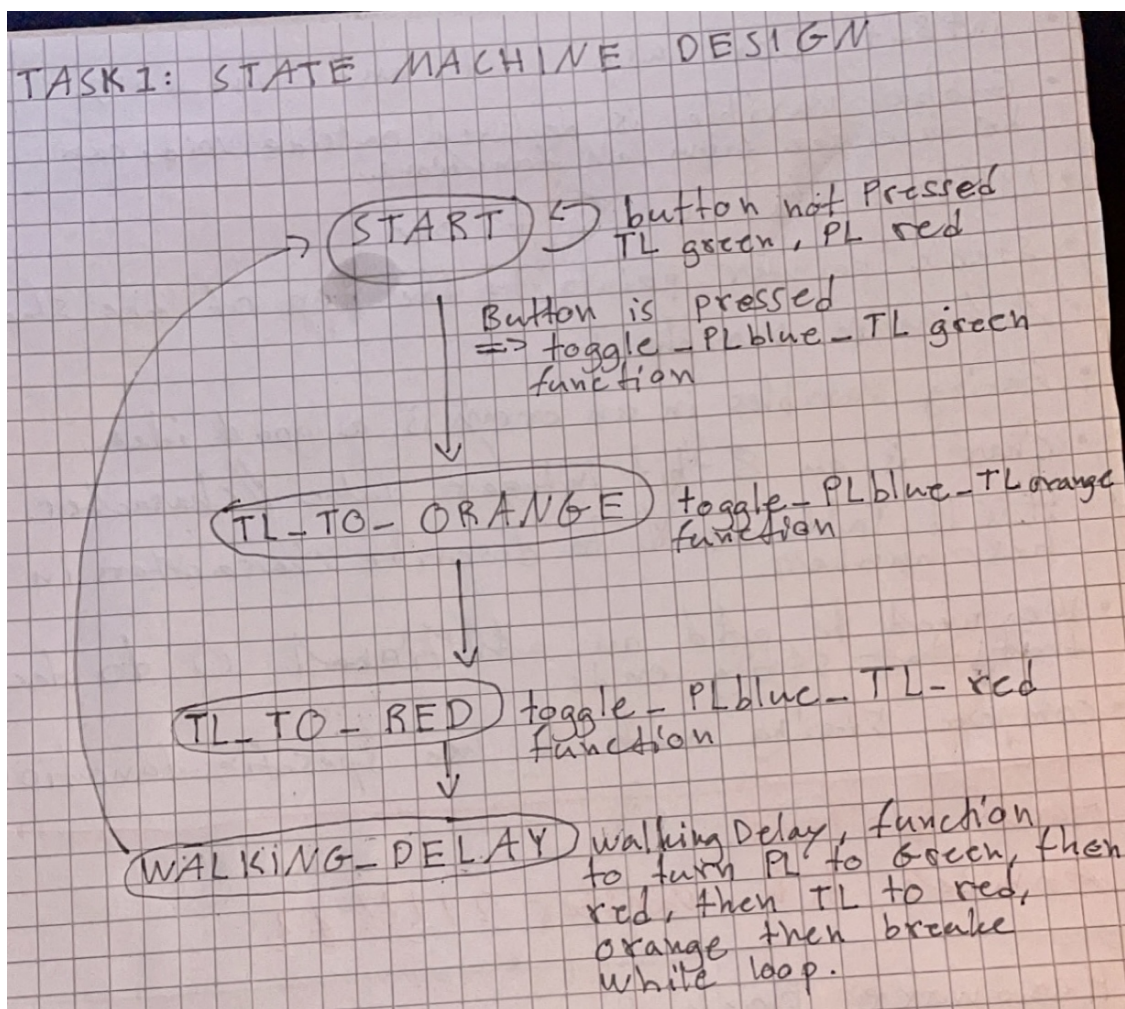 TASK1: STATE MACHINE DESIGN
START
button not Pressed
TL green, PL red
Button is pressed
=> toggle_PLblue_TL green
function
TL_TO_ORANGE
toggle_PLblue_TLorange
function
TL_TO_RED
toggle_PLblue_TL_red
function
WALKING_DELAY
walkingDelay, function
to turn PL to Green, then
red, then TL to red,
orange then breake
while loop.